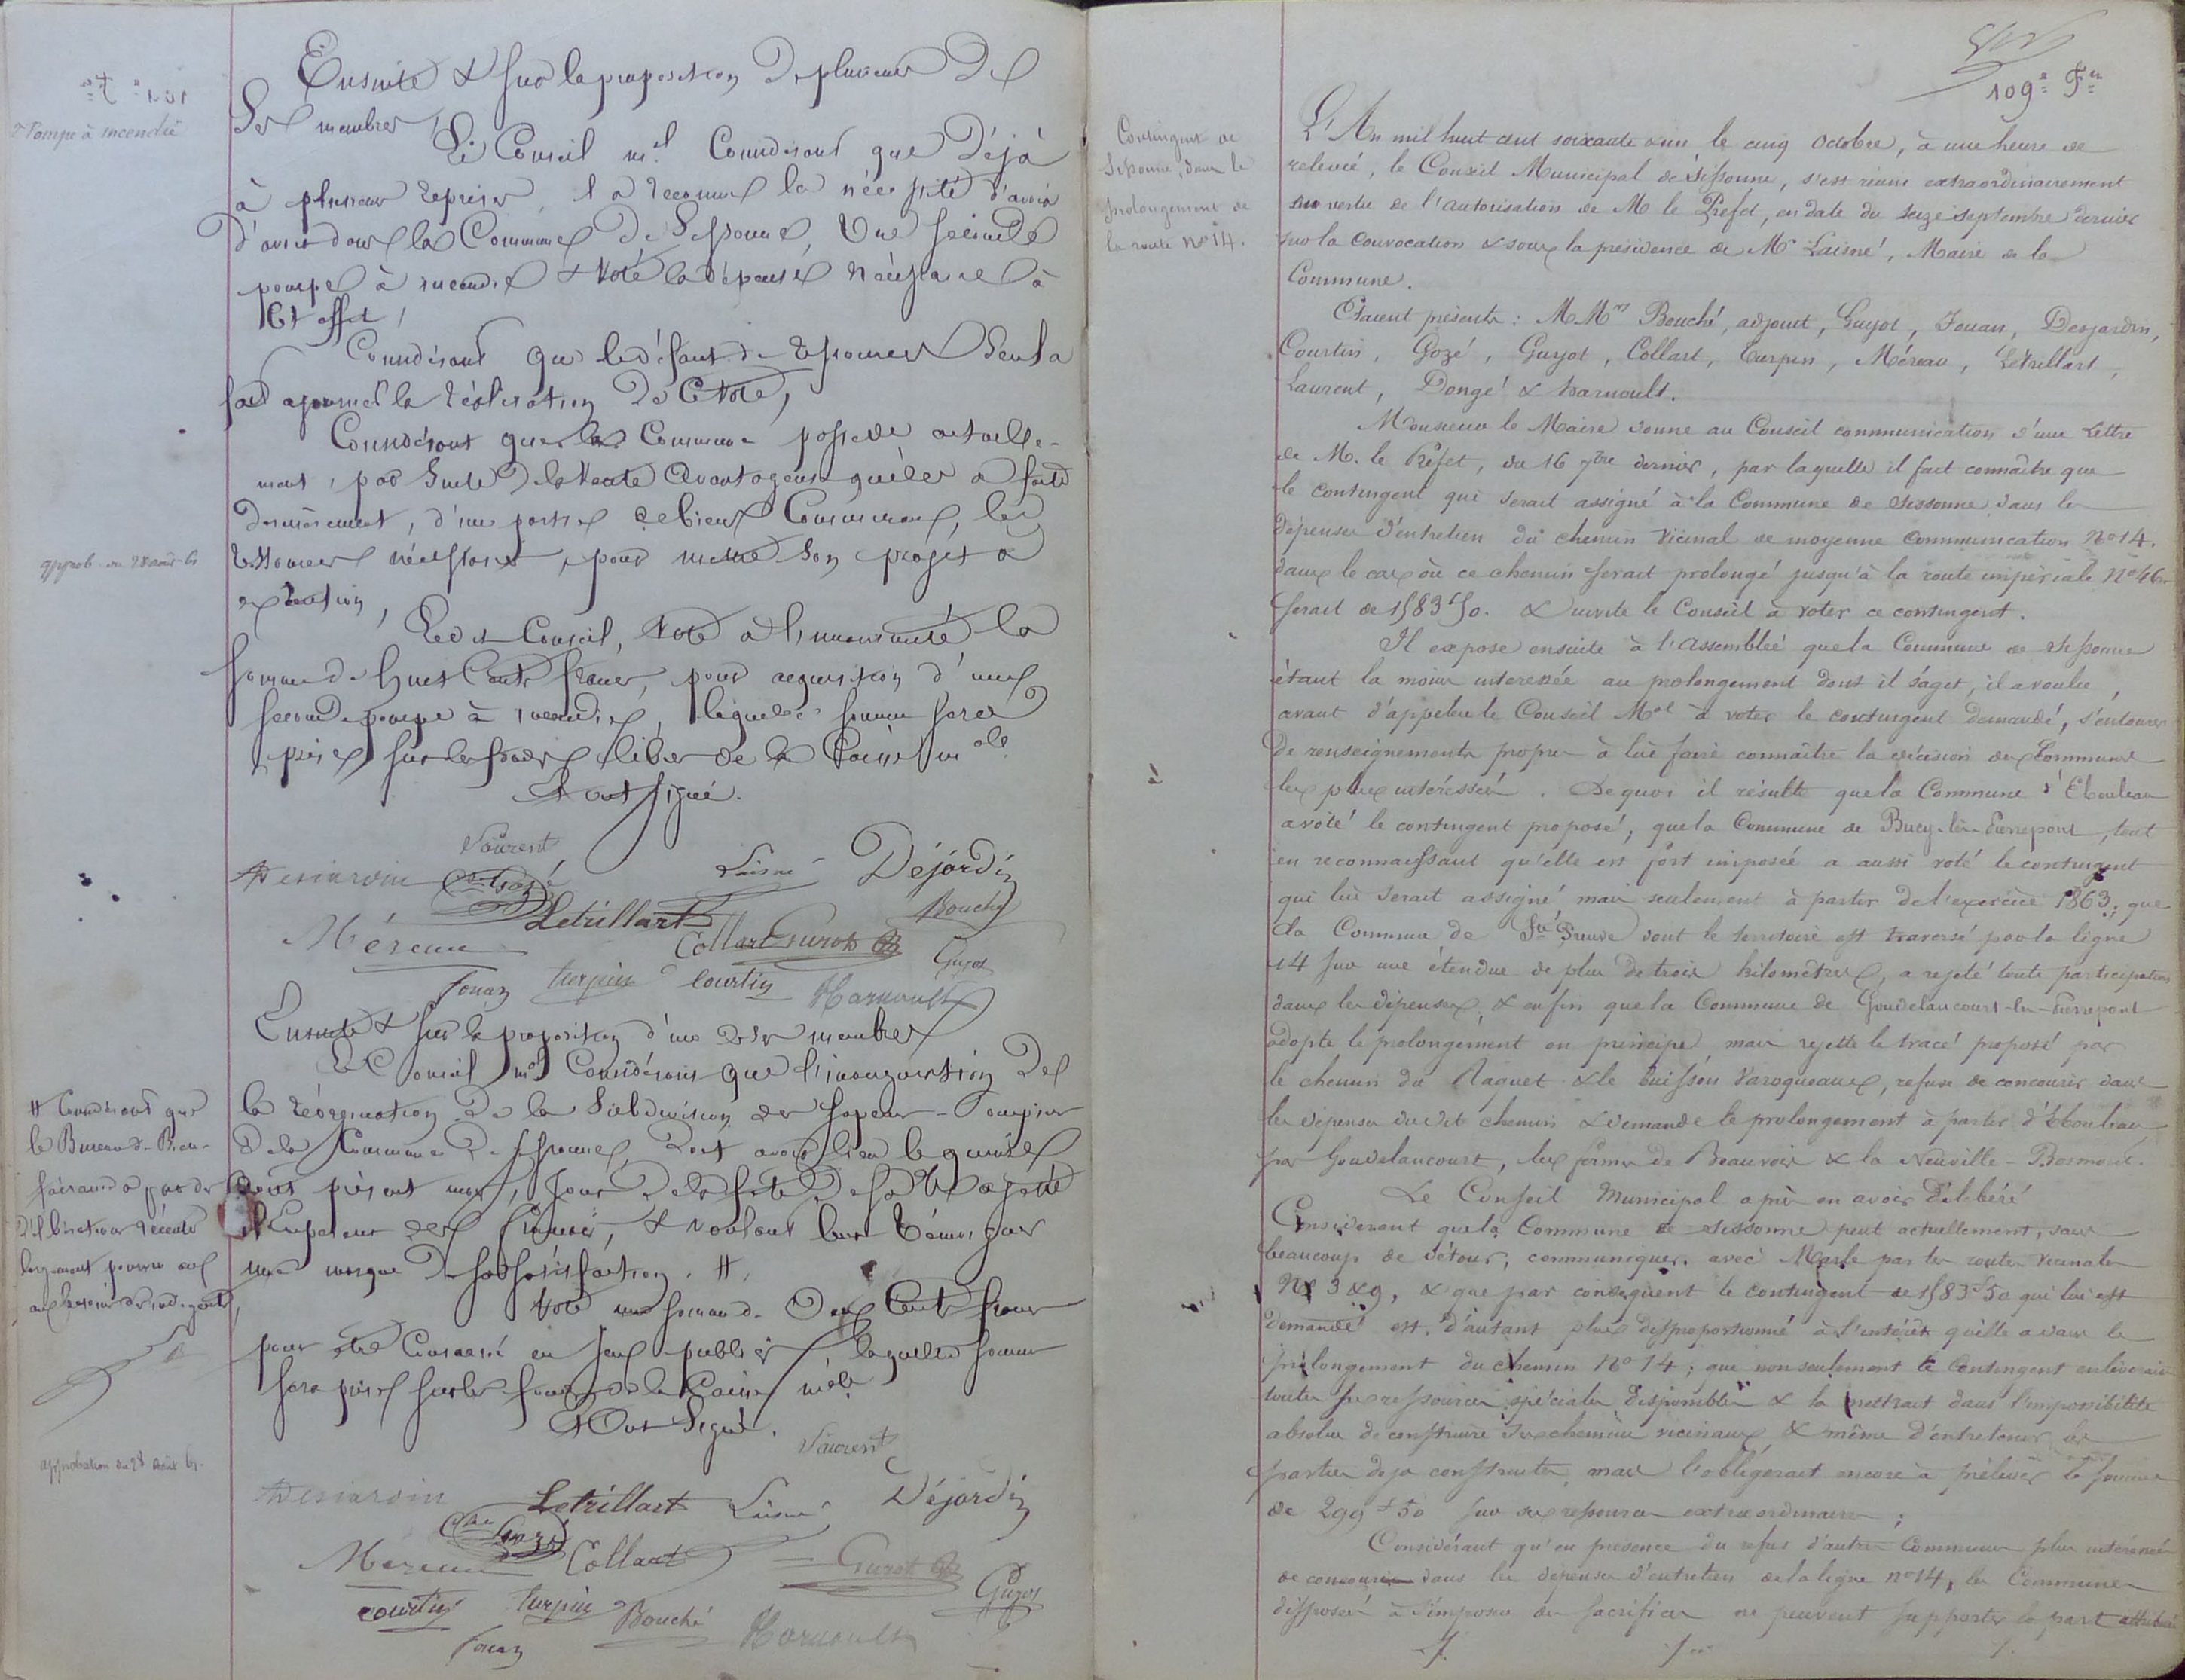 2e Pompe à incendie
Ensuite & sur la proposition de plusieurs de
ses membres,
Le Conseil mal Considérant que déjà
à plusieurs reprises, il a reconnu la nécessité d'avoir
d'avoir dans la Commune de Sissonne, une seconde
pompe à incendie & voté la dépense nécessaire à
cet effet,
Considérant que le défaut de ressources seul a
fait ajourner la réalisation de ce vote,
Considérant que la Commune possède actuelle-
ment, par suite de la vente avantageuse qu'elle a faite
dernièrement, d'une partie de biens Communaux, les
ressources nécessaires, pour mettre son projet à
exécution,
approb. du 28 août 61
Ledit Conseil, vote à l'unanimité la
somme de huit cents francs, pour acquisition d'une
seconde pompe à incendie, laquelle somme sera
prise sur les fonds libres de la Caisse male
Et ont signé.
Laurent
Desjardin Gozé Laisné Déjardin
Letrillart Bouché
Méreau Collart Guyot Guyot
Fouan turpin Courtin Harnoult
Ensuite & sur la proposition d'un de ses membres
Le Conseil mal Considérant que l'inauguration de
la réorganisation de la Subdivision des Sapeurs-Pompiers
de la Commune de Sissonne, doit avoir lieu le quinze
août présent mois, jour de la fête de Sa Majesté
l'Empereur des Français, & voulant leur témoigner
une marque de sa satisfaction. #.
# Considérant que
le Bureau de Bien-
faisance a par des
délibérations récentes
largement pourvu aux
aux besoins des indigents,
Vote une somme de Deux Cents francs
pour être Consacré en jeux publics, laquelle somme
sera prise sur les fonds de la Caisse male
Et Ont Signé.
approbation du 28 Août 61.
Laurent
Desjardin Letrillart Laisné Déjardin
Gozé
Mereau Collart Guyot Guyot
courtin turpin Bouché
Fouan Harnoult
109e Fet
Contingent de
Sissonne, dans le
prolongement de
la route No 14.
L'An mil huit cent soixante & un le cinq Octobre, à une heure de
relevée, le Conseil Municipal de Sissonne, s'est réuni extraordinairement
en vertu de l'autorisation de M le Préfet, en date du seize septembre dernier
sur la Convocation & sous la présidence de Mr Laisné, Maire de la
Commune.
Etaient présents : MMrs Bouché, adjoint, Guyot, Fouan, Desjardin,
Courtin, Gozé, Guyot, Collart, Turpin, Méreau, Létrillart,
Laurent, Dongé & harnoult.
Monsieur le Maire donne au Conseil communication d'une Lettre
de M. le Préfet, du 16 7bre dernier, par laquelle il fait connaître que
le contingent qui serait assigné à la Commune de Sissonne dans les
dépenses d'entretien du chemin Vicinal de moyenne Communication No 14.
dans le cas où ce chemin serait prolongé jusqu'à la route impériale No 46
serait de 1583f50. & invite le Conseil à voter ce contingent.
Il expose ensuite à l'Assemblée que la Commune de Sissonne
étant la moins interessée au prolongement dont il s'agit, il a voulu,
avant d'appeler le Conseil Mal à voter le contingent demandé, s'entourer
de renseignements propres à lui faire connaître la décision des Communes
les plus intéressées. De quoi il résulte que la Commune d'Ebouleau
a voté le contingent proposé ; que la Commune de Bucy-lès-Pierrepont, tout
en reconnaissant qu'elle est fort imposée a aussi voté le contingent
qui lui serait assigné mais seulement à partir de l'exercice 1863 ; que
la Commune de Ste Preuve dont le territoire est traversé par la ligne
14 sur une étendue de plus de trois kilomètres, a rejeté toute participation
dans les dépenses, & enfin que la Commune de Goudelancourt-lès-Pierrepont
adopte le prolongement en principe mais rejette le tracé proposé par
le chemin du Raquet & le buisson Varoqueaux, refuse de concourir dans
les dépenses du dit chemin & demande le prolongement à partir d'Ebouleau
par Goudelancourt, les fermes de Beauvoir & la Neuville-Bosmont.
Le Conseil Municipal après en avoir Délibéré
Considérant que la Commune de Sissonne peut actuellement, sans
beaucoup de détour, communiquer avec Marle par les routes vicinales
No 3 & 9, & que par conséquent le contingent de 1583f50 qui lui est
demandé est d'autant plus disproportionné à l'intérêt qu'elle a dans le
prolongement du chemin No 14 ; que non seulement ce Contingent enlèverait
toutes ses ressources spéciales disponibles & la mettrait dans l'impossibilité
absolue de construire ses chemins vicinaux & même d'entretenir les
parties déjà construites, mais l'obligerait encore à prélever la somme
de 299f50 sur ses ressources extraordinaires ;
Considérant qu'en présence du refus d'autres Communes plus intéressées
de concourir dans les dépenses d'entretien de la ligne no 14, les Communes
disposées à s'imposer des sacrifices ne peuvent supporter la part attribuée